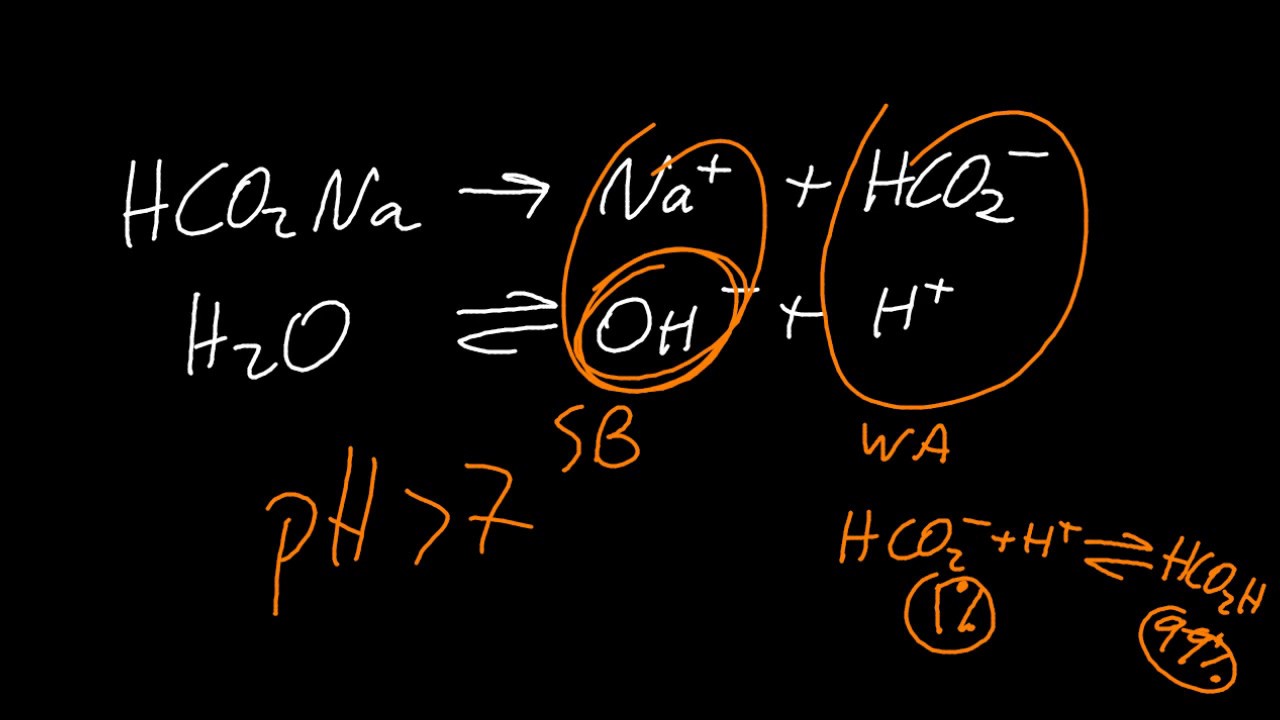 HCO₂Na → Na⁺ + HCO₂⁻
H₂O ⇌ OH⁻ + H⁺
SB WA
pH > 7
HCO₂⁻ + H⁺ ⇌ HCO₂H
1% 99%